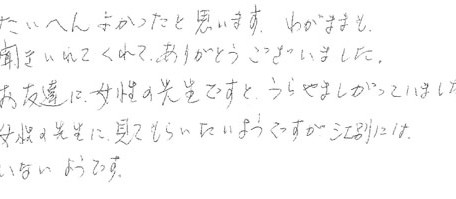 たいへんよかったと思います。わがままも、
聞きいれてくれて、ありがとうございました。
お友達に、女性の先生ですと、うらやましがっていました
女性の先生に、見てもらいたいようですが江別には、
いないようです。